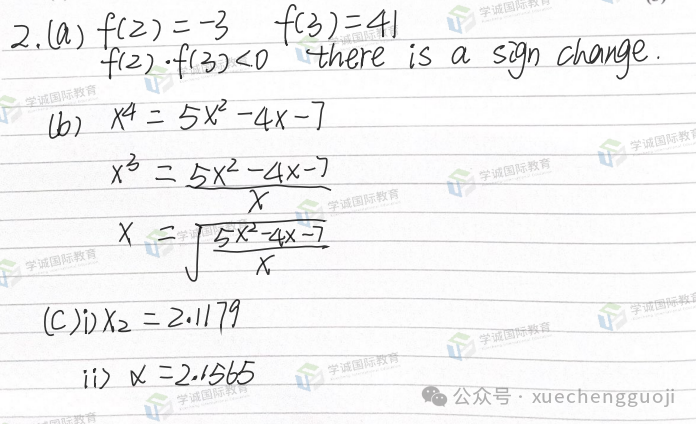 2.(a) f(2)=-3 f(3)=41
f(2)·f(3)<0 there is a sign change.
(b) x⁴ = 5x²-4x-7
x³ = (5x²-4x-7)/x
x = √((5x²-4x-7)/x)
(C) i) x₂ = 2.1179
ii) α = 2.1565
学诚国际教育
公众号 · xuechengguoji